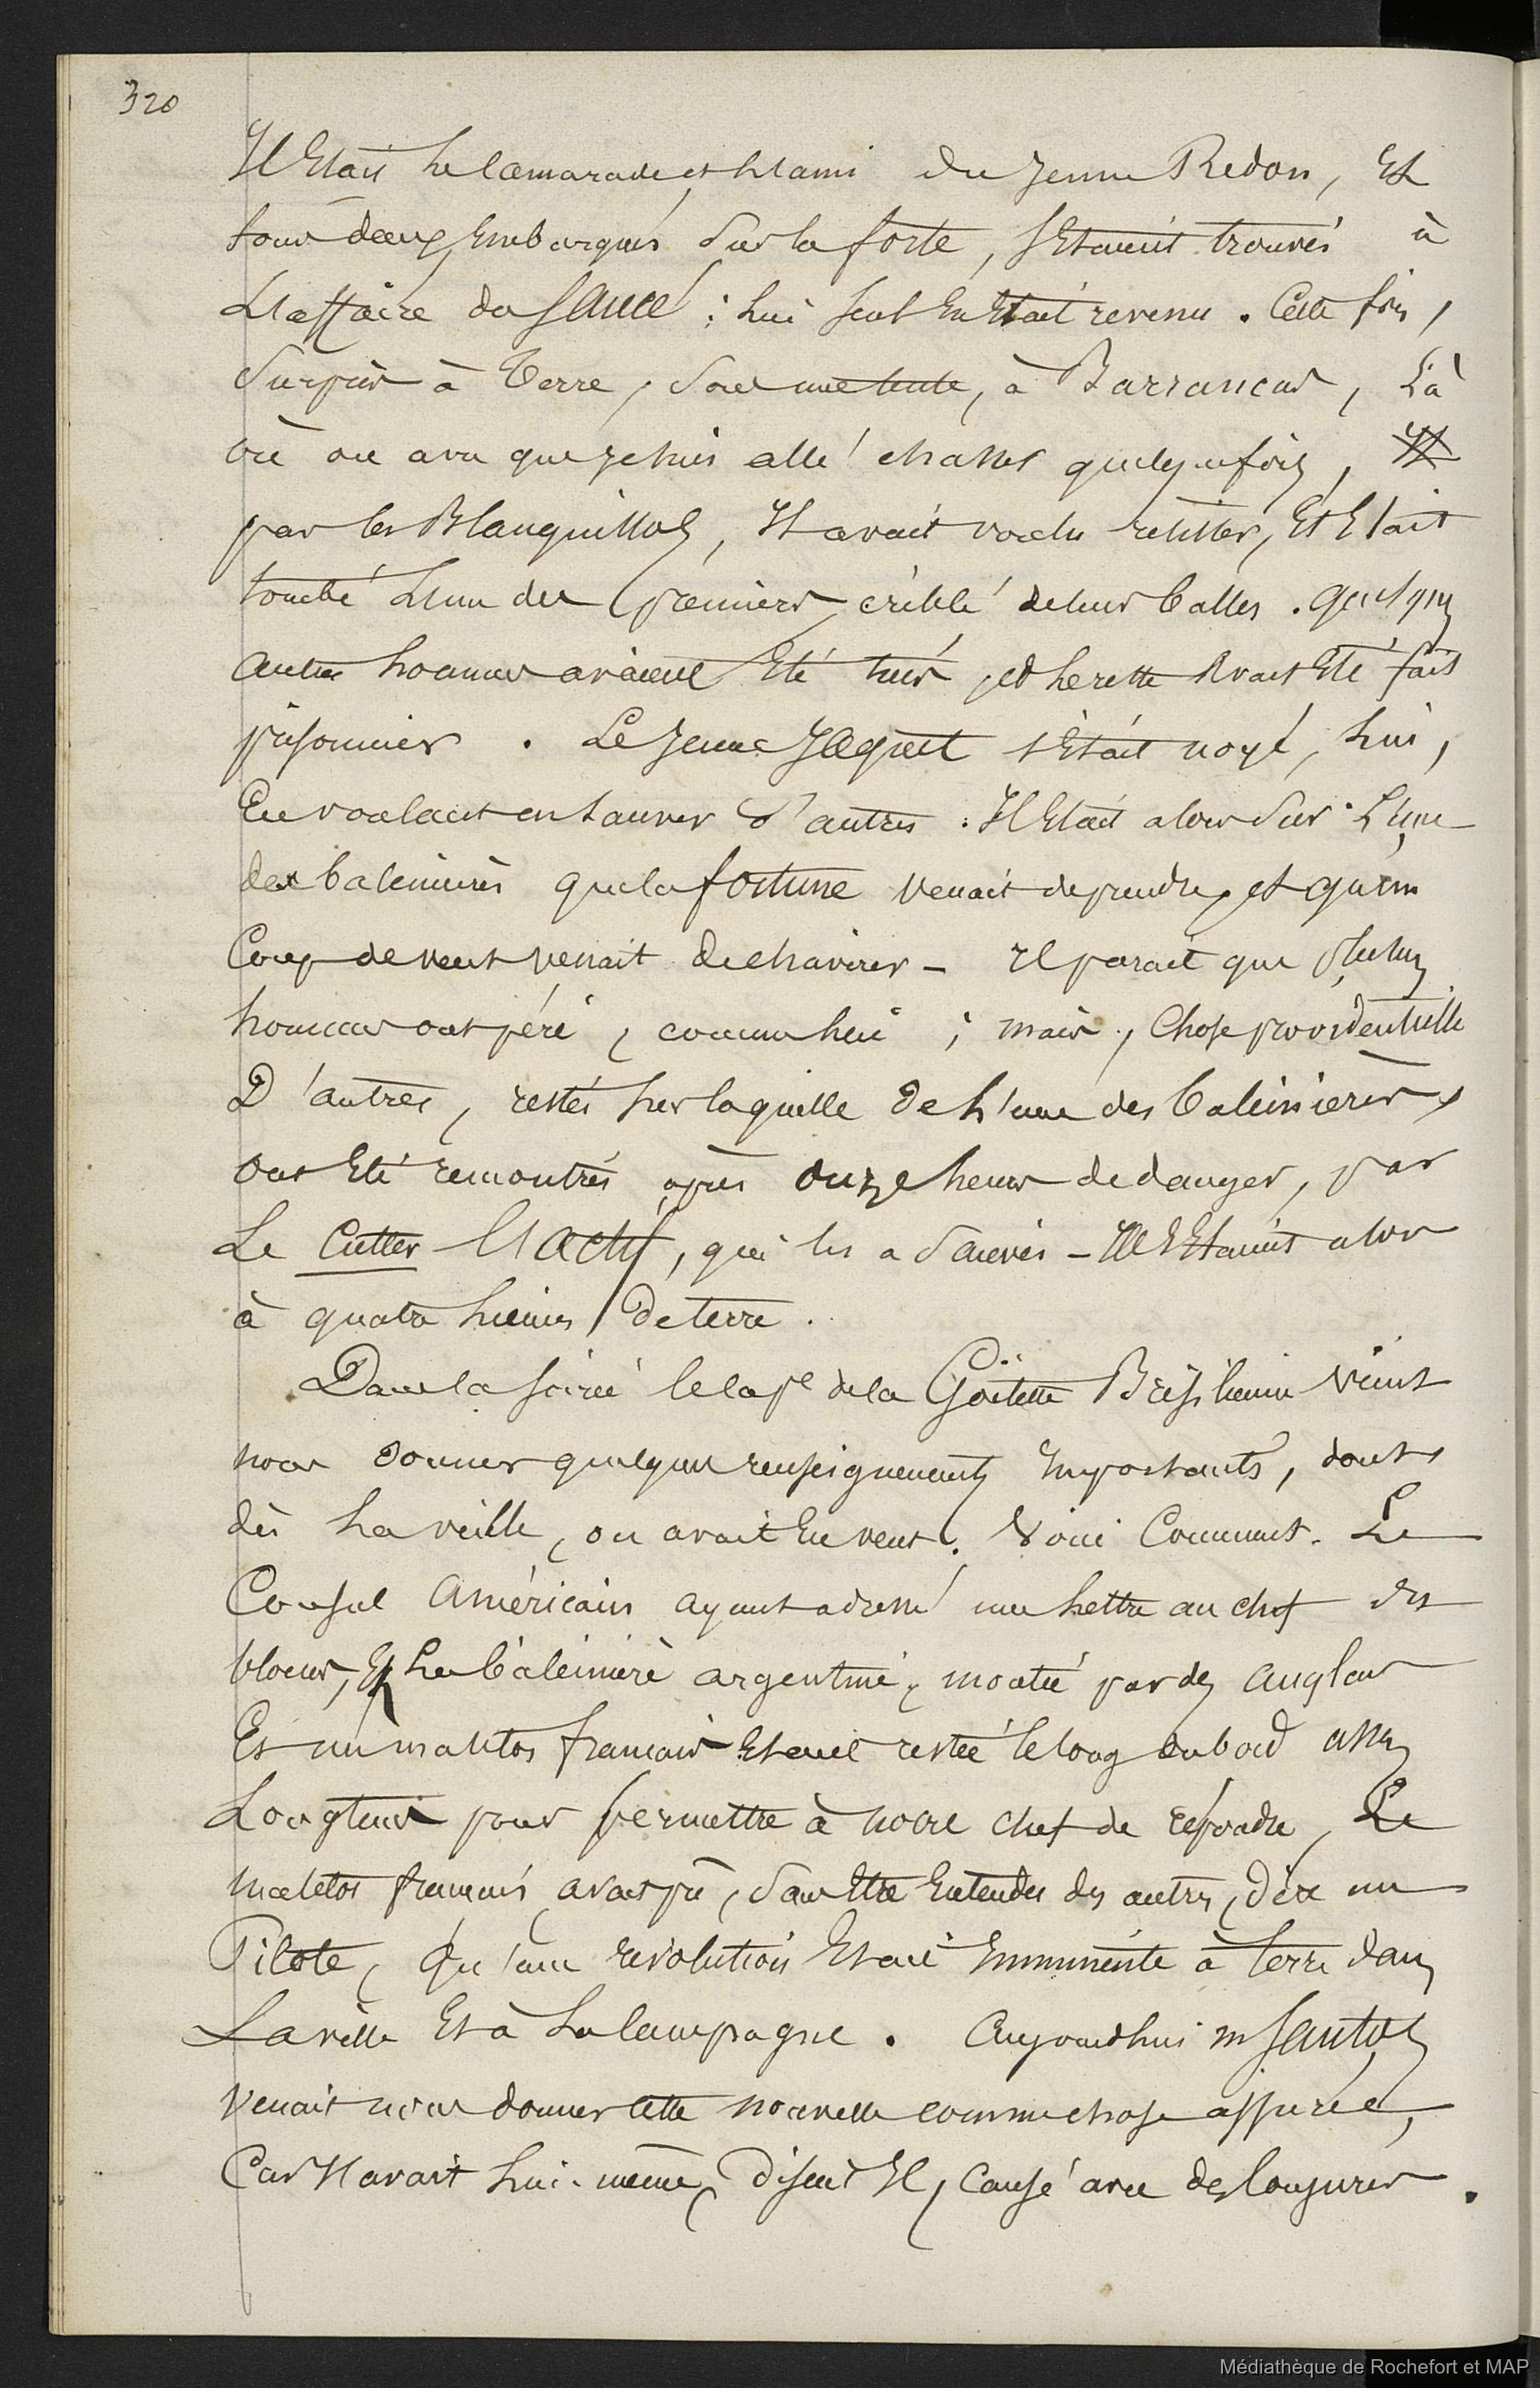 320
Il Etait le camarade, et l'ami du jeune Redon, Et
tous deux, Embarqués sur la forte, s'Etaient trouvés à
L'affaire du Saucé : lui seul En Etait revenu. Cette fois,
Surpris à Terre, sous une tente, à Barrancas, Là
où on a vu que je suis allé chasser quelquefois,
par les Blanquillos, Il avait voulu résister, Et Etait
tombé L'un des premiers, criblé de leurs balles. quelques
autres hommes avaient Eté tués, et le reste Avait Eté fait
prisonnier. Le Jeune Jacquet s'était noyé, lui,
En voulant en sauver d'autres. Il Etait alors sur L'une
des baleinières que la fortune venait de prendre, et qu'un
Coup de vent venait de chavirer - Il parait que plusieurs
hommes ont péri, comme lui ; mais, Chose providentielle
D'autres, restés sur la quille de l'une des baleinières,
Ont Eté remontrés après Onze heures de danger, par
Le Cutter L'actif, qui les a sauvés - Ils Etaient alors
à quatre lieues De terre.
Dans la soirée le cape de la Goëlette Brésilienne Vint
nous Donner quelques renseignements Importants, dont,
dès la veille, on avait Eu vent. Voici Comment. Le
Consul américain ayant adressé une lettre au chef des
blocus, Et La baleinière argentine, montée par des anglais
Et un matelot français Etant restée le long du bord assez
Longtems pour permettre à notre chef de répondre, Le
matelot français avait pû, sans Etre Entendu des autres, dire au
Pilote, Qu'une révolution Etait Imminente à terre dans
La ville Et à La campagne. Aujourdhui m Santos
Venait nous donner cette nouvelle comme chose assurée,
Car Il avait lui-même, Disait Il, causé avec des conjurés.
Médiathèque de Rochefort et MAP